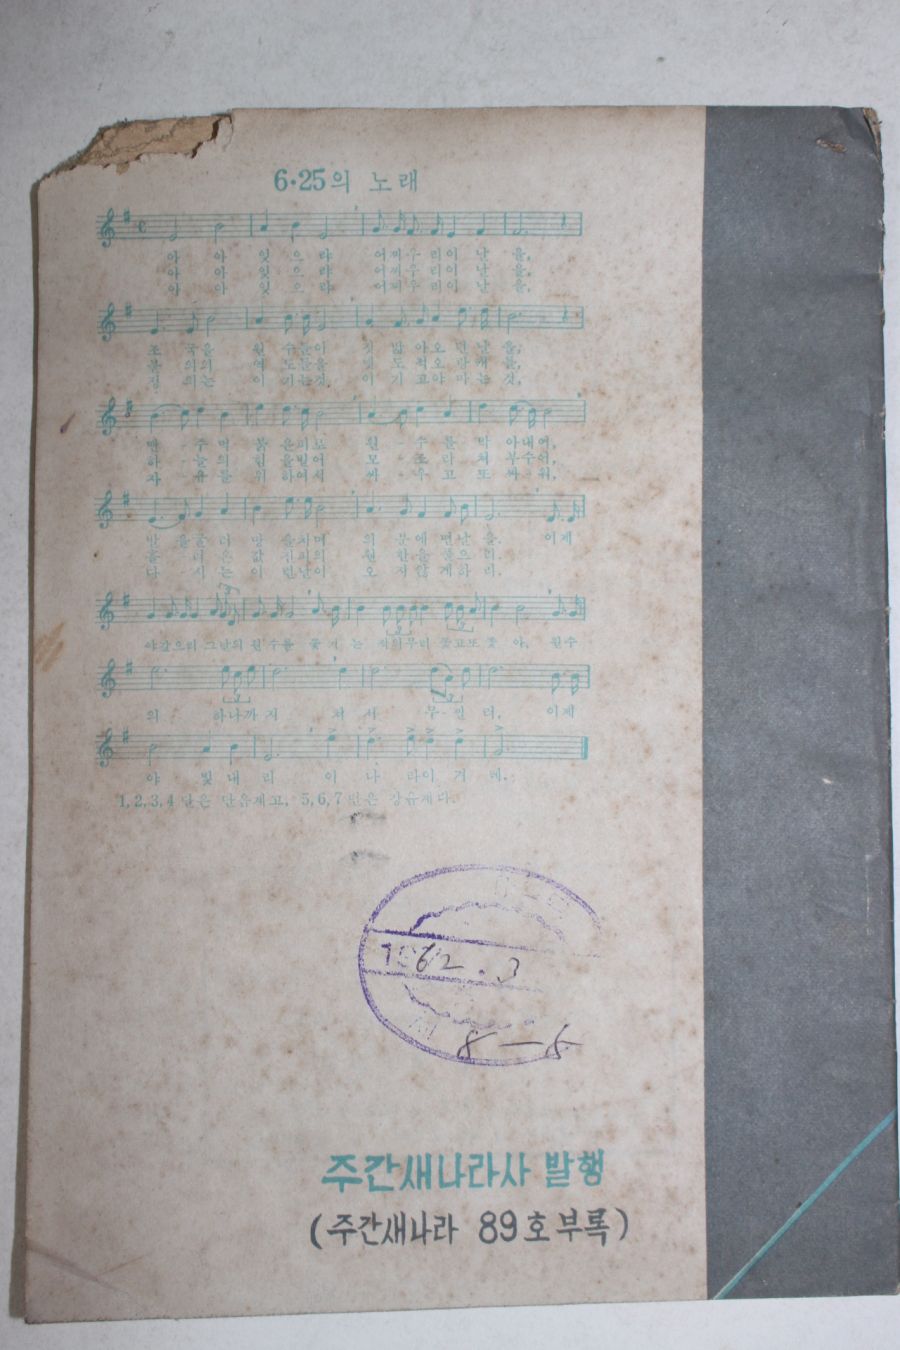 6·25의 노래
아 아 잊 으 랴 어찌우리이 난 을,
아 아 잊 으 랴 어찌우리이 난 을,
아 아 잊 으 랴 어찌우리이 난 을,
조 국을 원 수들이 짓 밟 아오 던 날 을,
불 의의 역 도들을 도 적오 랑캐 를,
정 의는 이 기는것, 이 기 고야 마 는 것,
맨 - 주 먹 붉 은피로 원 - 수 를 막 아내어,
하 - 늘의 힘 을빌어 모 - 조 리 쳐 부수어,
자 - 유 를 위 하여서 싸 - 우 고 또 싸 - 워,
발 을굴 러 땅 을치며 의 분에 떤날 을. 이제
흘 - 려 온 값 진피의 원 한을 풀으 리.
다 시 는 이 런날이 오 지않 게하 리.
야갚으리 그날의 원 수를 쫓 기 는 적의무리 쫓고또 쫓 아, 원수
의 하나까 지 쳐 서 무 - 찔 러, 이제
야 빛 내 리 이 나 라이 겨 레.
1,2,3,4 단은 단음제고, 5,6,7 단은 강유제다.
62.3
8-5
주간새나라사 발행
(주간새나라 89호부록)